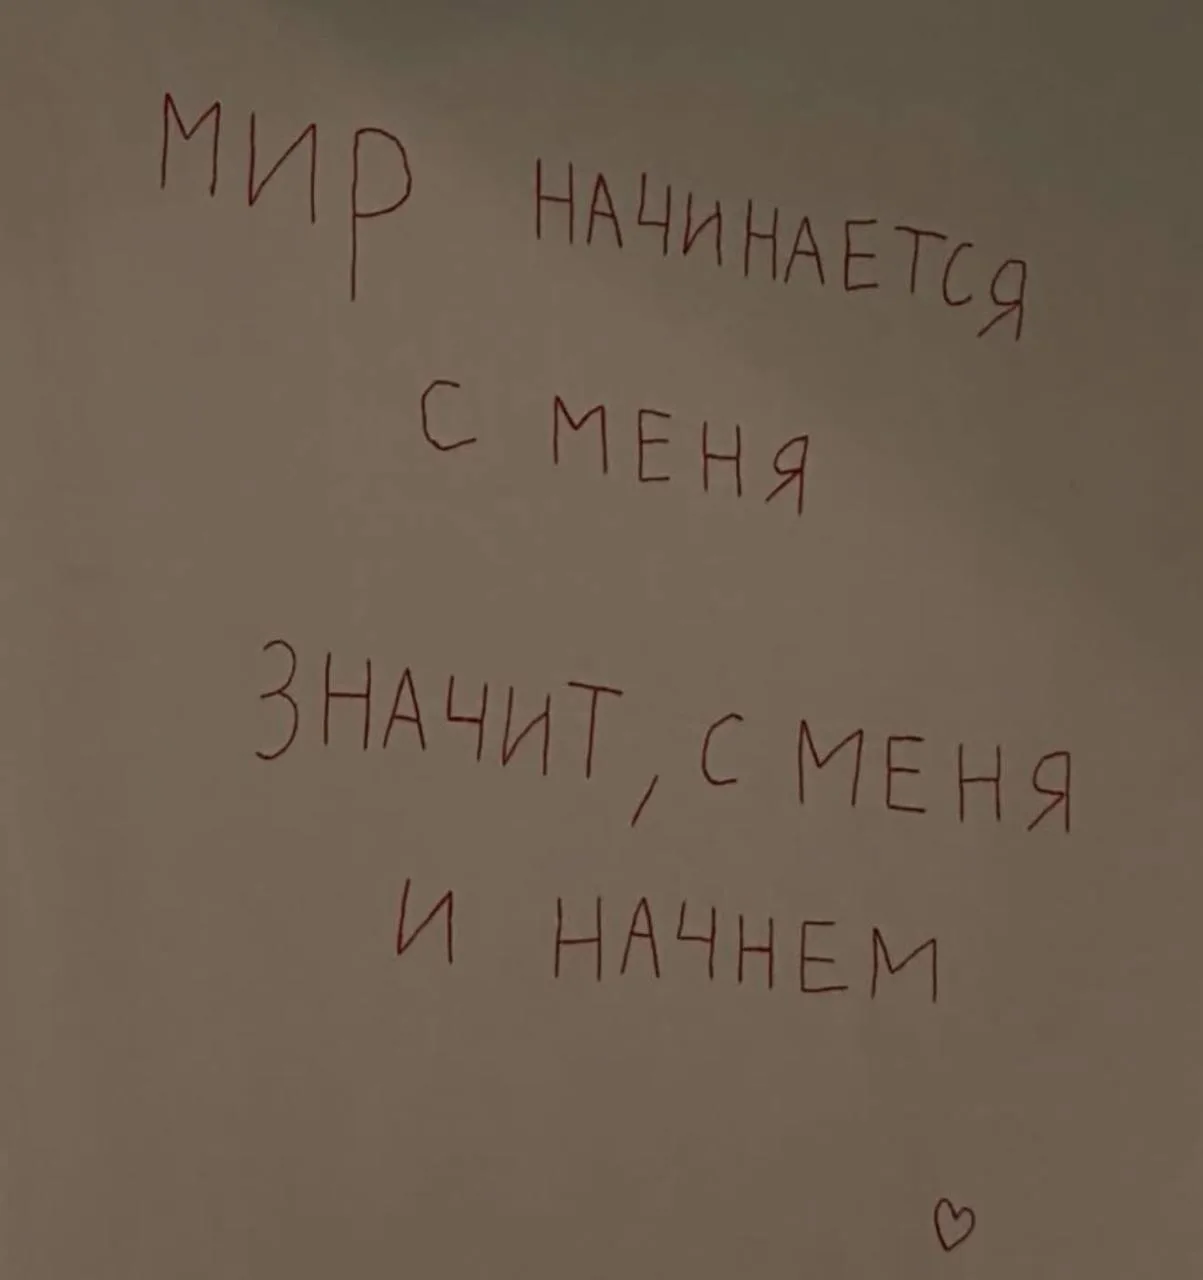 МИР НАЧИНАЕТСЯ
С МЕНЯ
ЗНАЧИТ, С МЕНЯ
И НАЧНЕМ